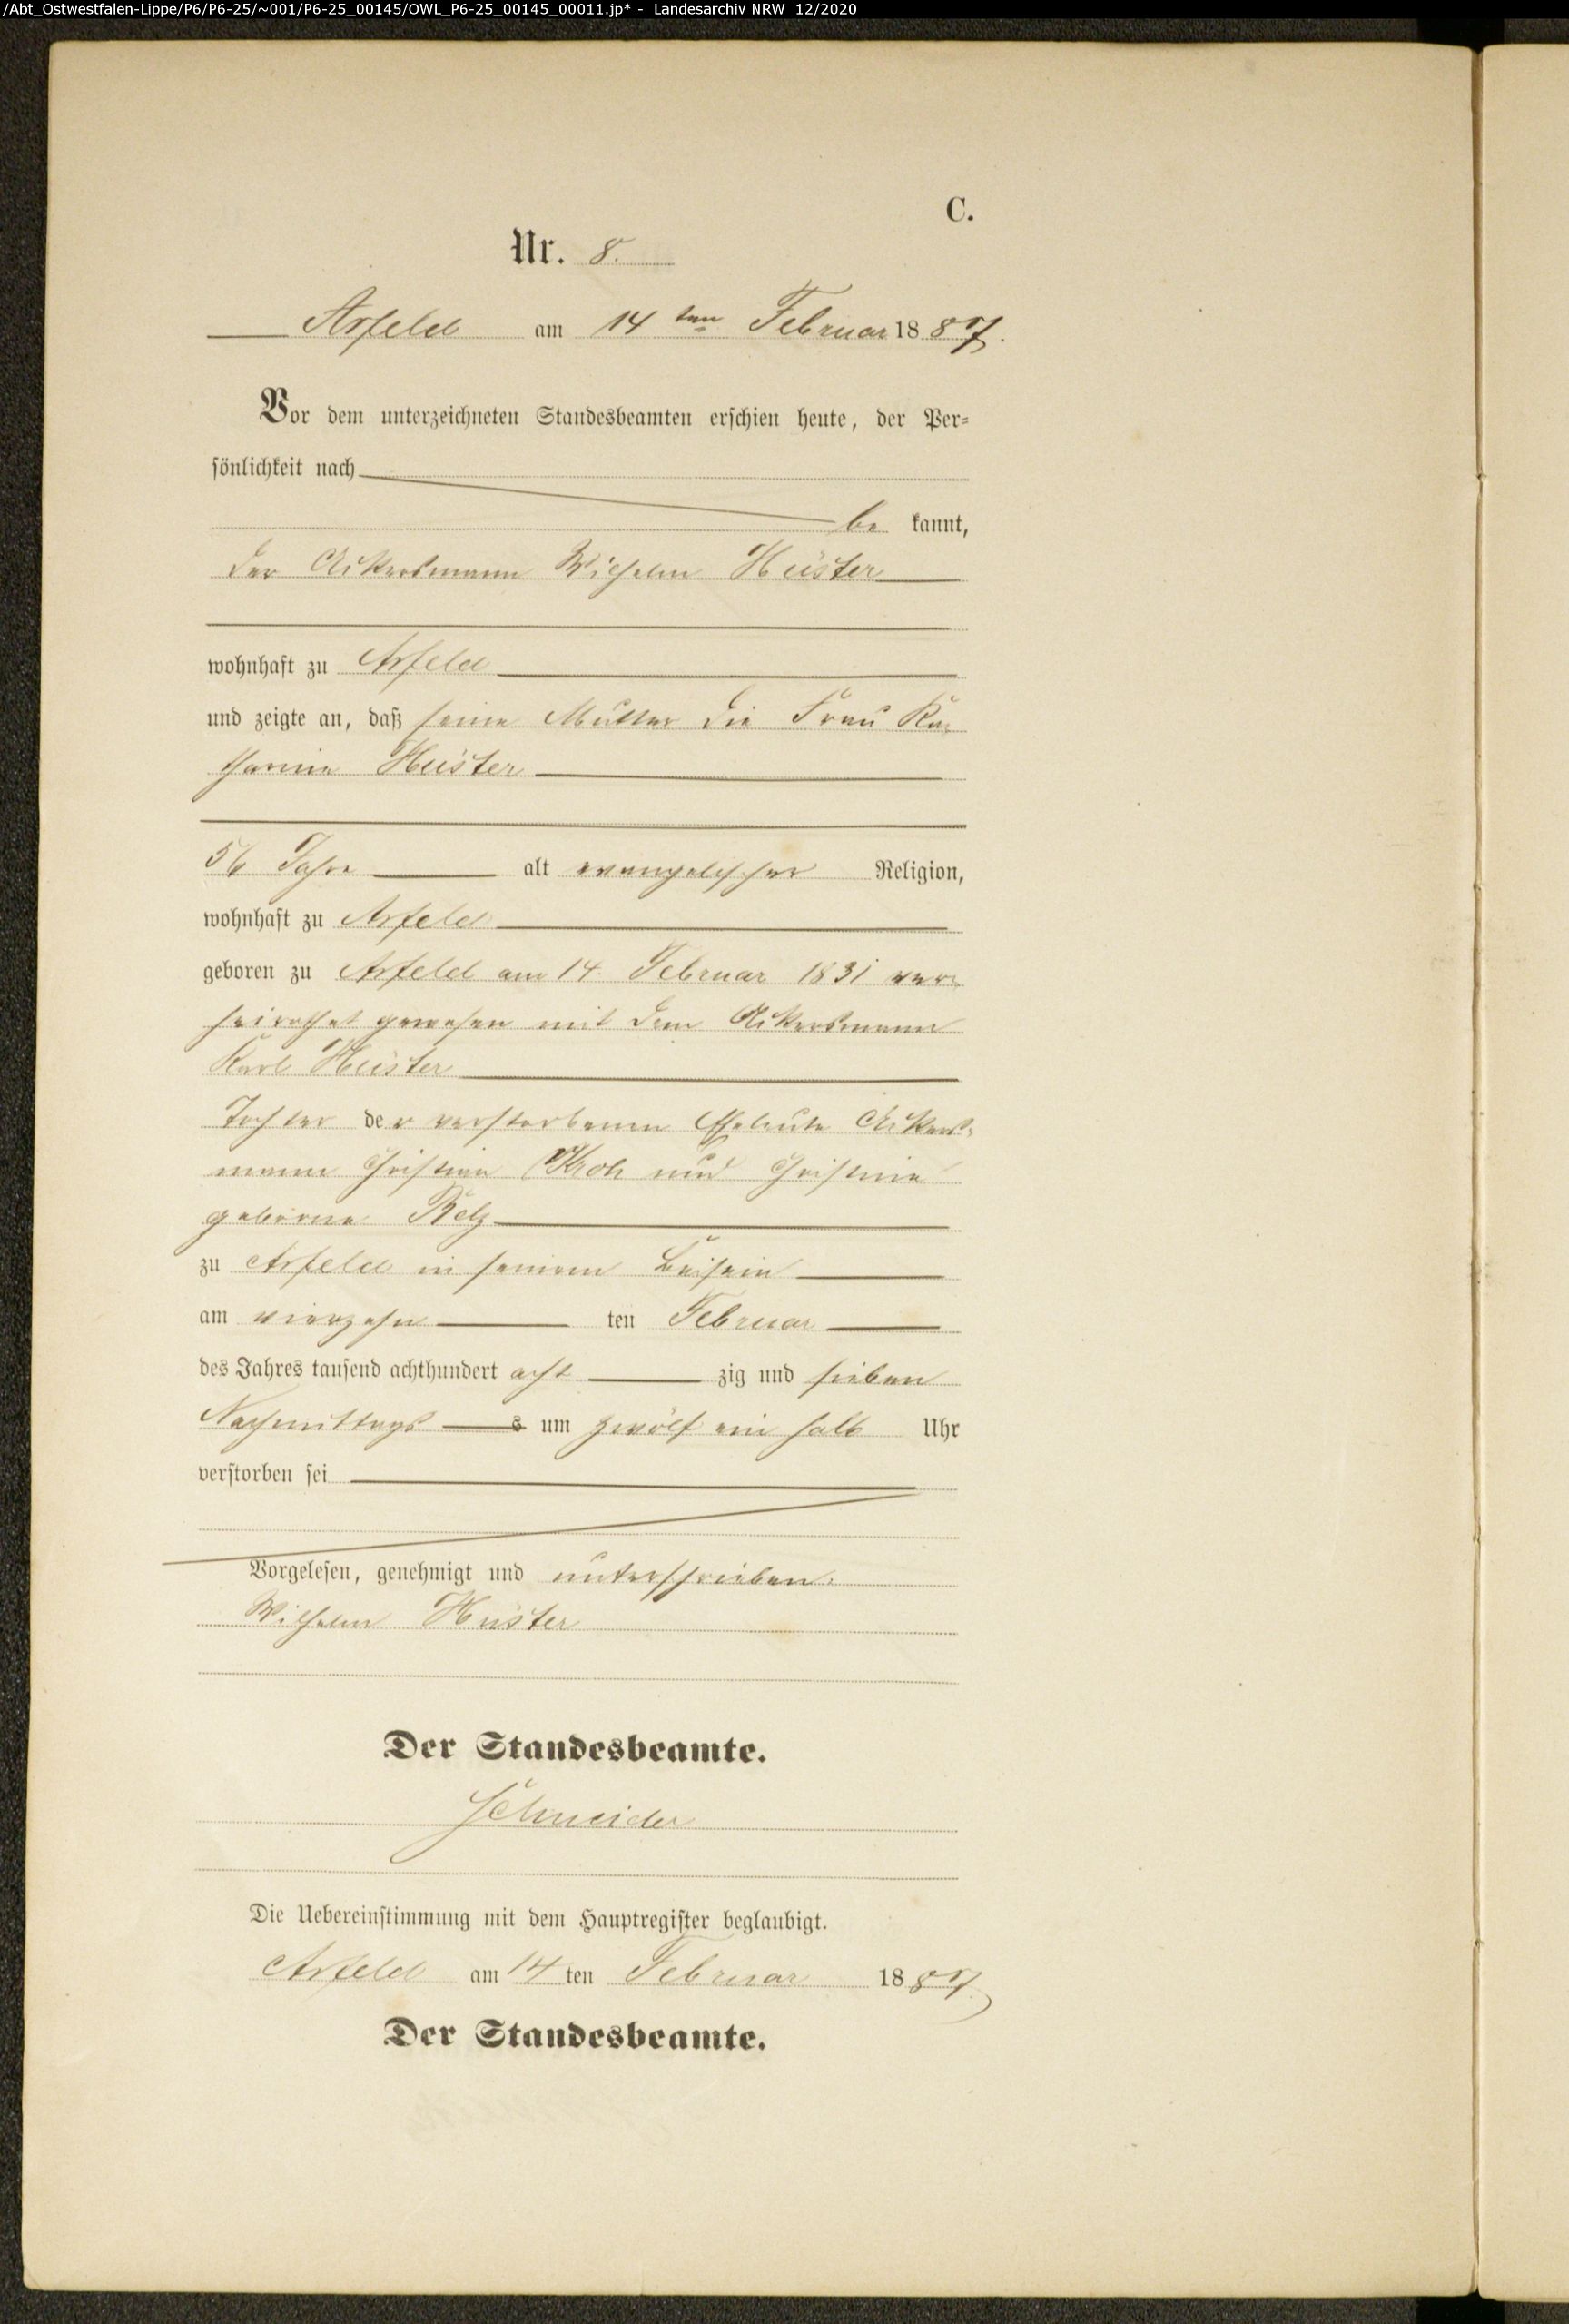 /Abt_Ostwestfalen-Lippe/P6/P6-25/~001/P6-25_00145/OWL_P6-25_00145_00011.jp* - Landesarchiv NRW 12/2020
C.
Nr. 8.
Arfeld am 14 ten Februar 1887.
Vor dem unterzeichneten Standesbeamten erschien heute, der Per-
sönlichkeit nach
be kannt,
der Ackersmann Wilhelm Hüster
wohnhaft zu Arfeld
und zeigte an, daß seine Mutter die Frau Ka-
tharine Hüster
56 Jahre alt evangelischer Religion,
wohnhaft zu Arfeld
geboren zu Arfeld am 14. Februar 1831 ver-
heirathet gewesen mit dem Ackersmann
Karl Hüster
Tochter der verstorbenen Eheleute Ackers-
mann Christian Kroh und Christine
geborne Belz
zu Arfeld in seinem Beisein
am vierzehn ten Februar
des Jahres tausend achthundert acht zig und sieben
Nachmittags s um zwölf ein halb Uhr
verstorben sei
Vorgelesen, genehmigt und unterschrieben.
Wilhelm Hüster
Der Standesbeamte.
Schneider
Die Uebereinstimmung mit dem Hauptregister beglaubigt.
Arfeld am 14 ten Februar 1887.
Der Standesbeamte.